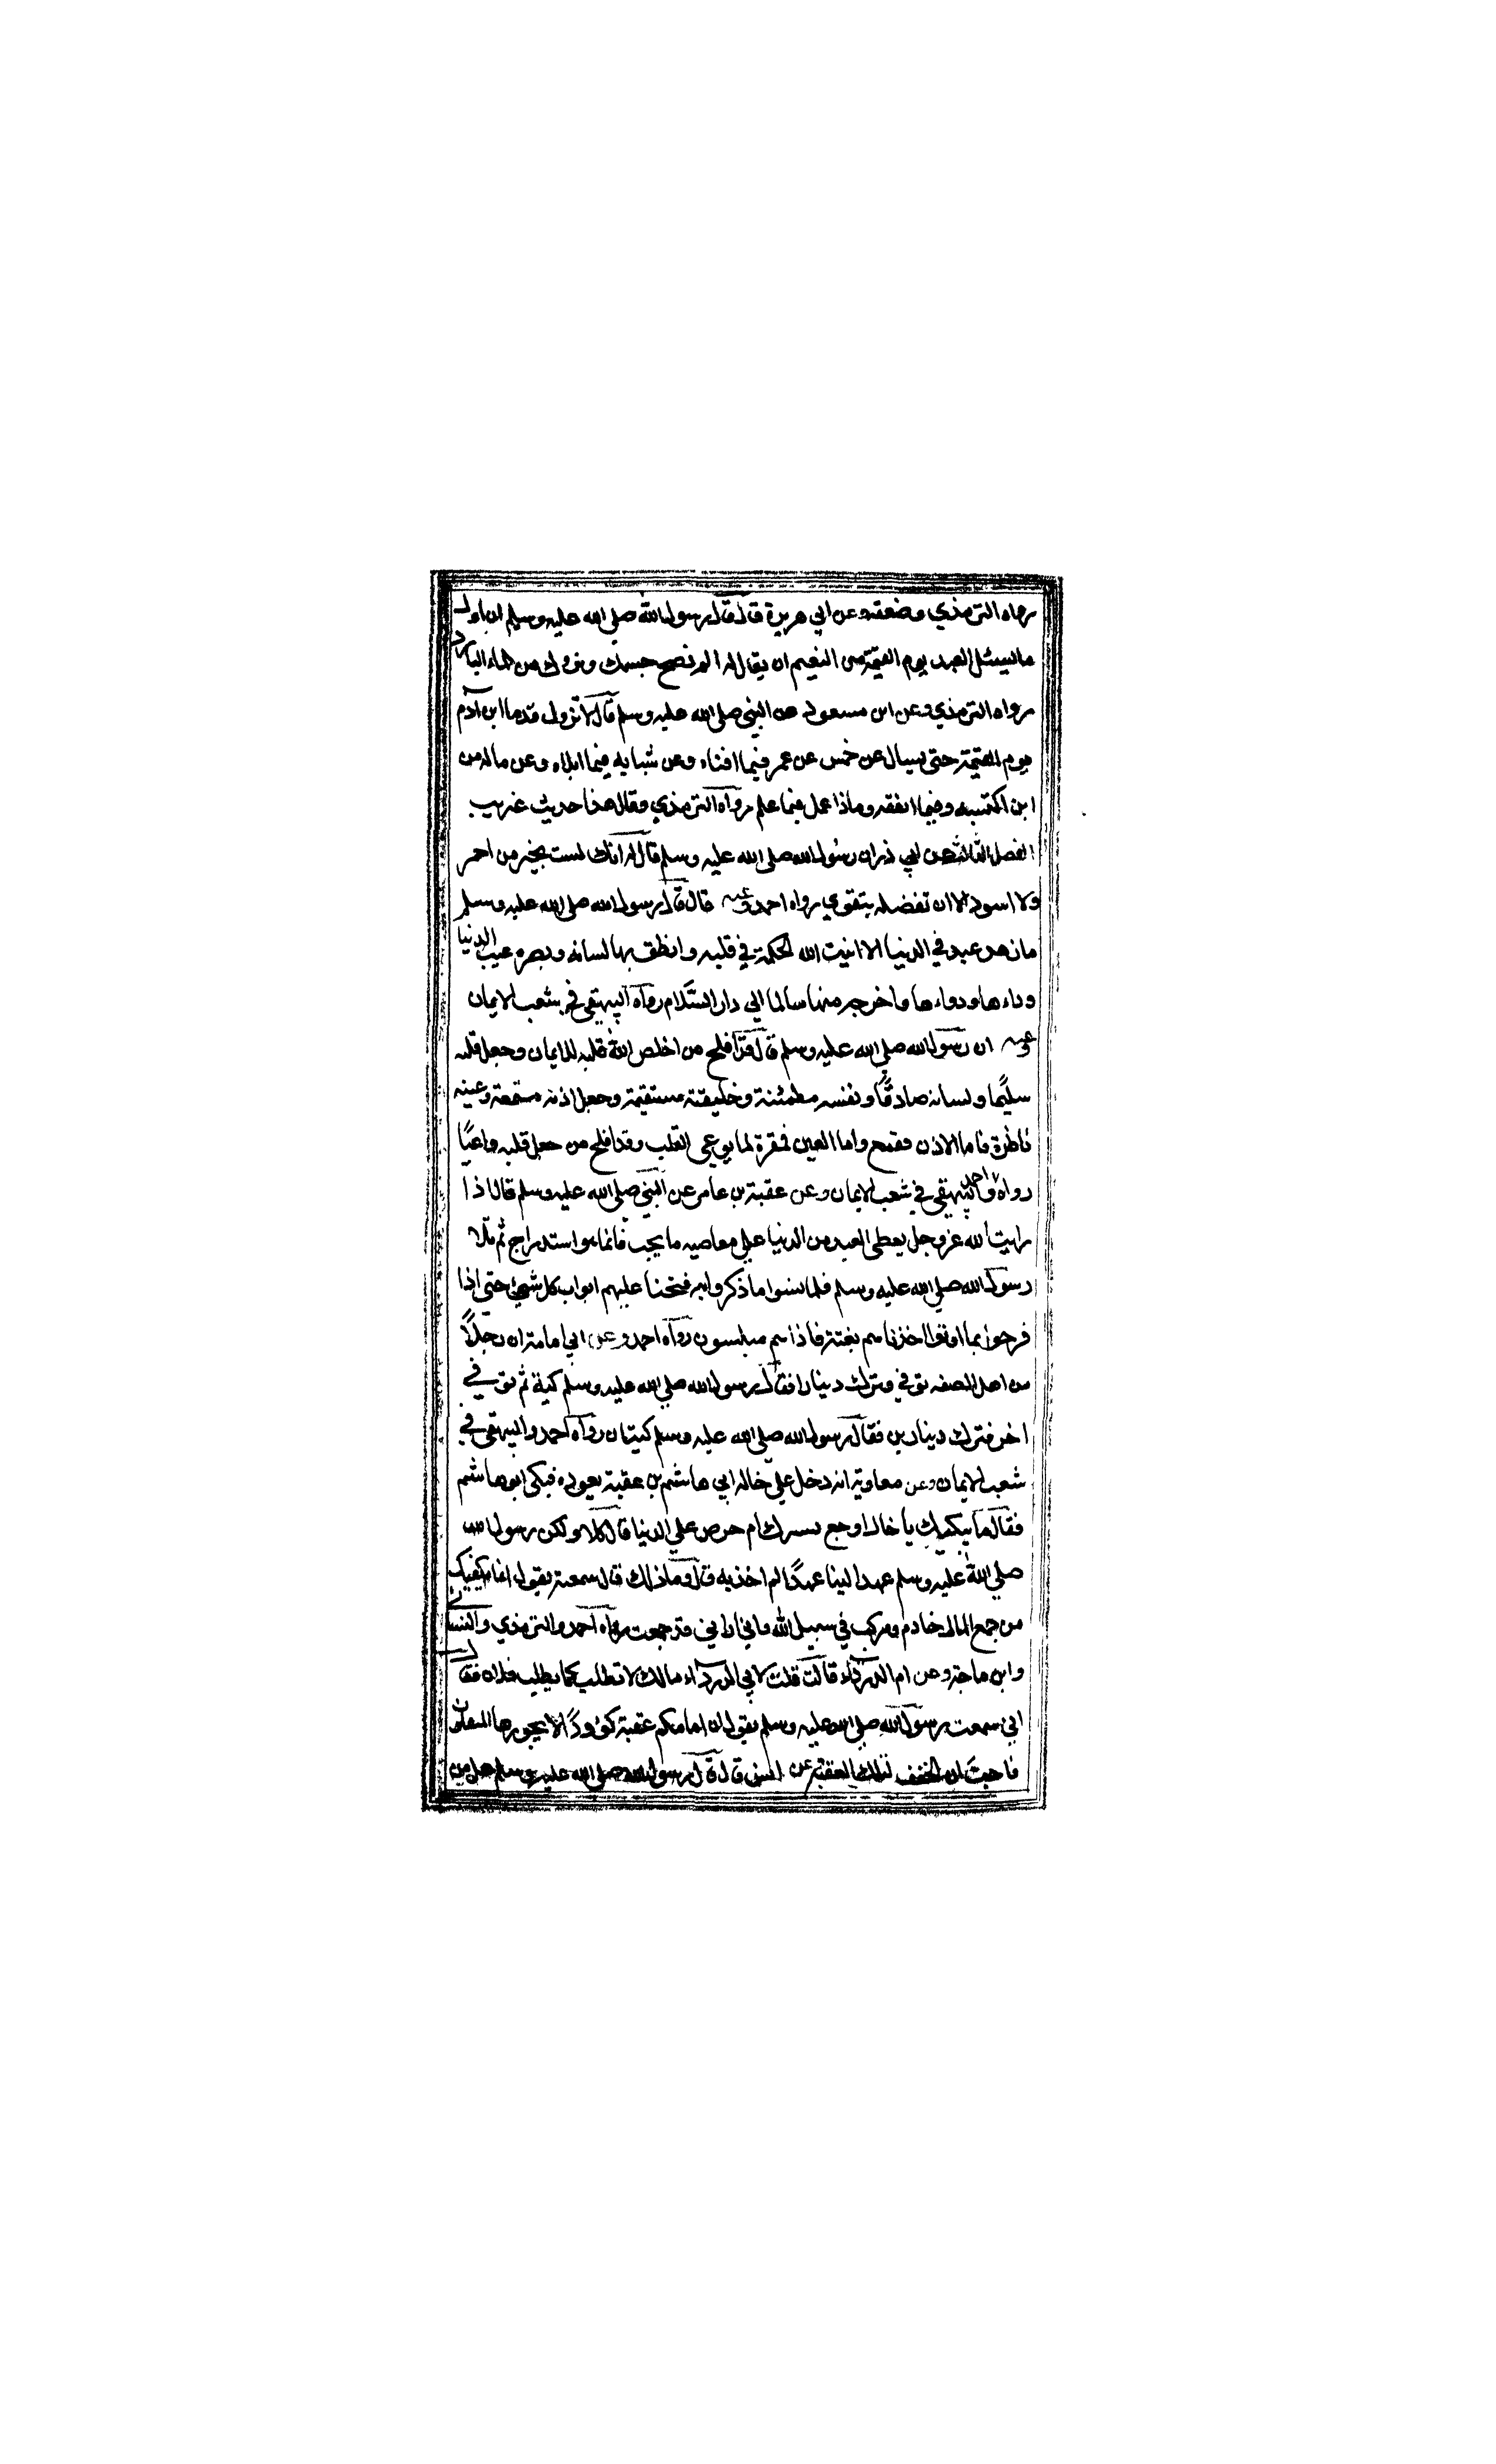 رواه الترمذي وضعفه وعن ابي هريرة قال قال رسول الله صلى الله عليه وسلم ان اول
ما يسئل العبد يوم القيمة من النعيم ان يقال له الم نصح جسمك ونروك من الماء البارد
رواه الترمذي وعن ابن مسعود عن النبي صلى الله عليه وسلم قال لا تزول قدما ابن آدم
يوم القيمة حتى يسال عن خمس عن عمر فيما افناه وعن شبابه فيما ابلاه وعن ماله من
اين اكتسبه وفيما انفقه وماذا عمل فيما علم رواه الترمذي وقال هذا حديث غريب
الفصل الثالث عن ابي ذر ان رسول الله صلى الله عليه وسلم قال له انك لست بخير من احمر
ولا اسود الا ان تفضله بتقوي رواه احمد وعنه قال قال رسول الله صلى الله عليه وسلم
ما زهد عبد في الدنيا الا انبت الله الحكمة في قلبه وانطق بها لسانه وبصره عيب الدنيا
وداءها ودواءها واخرجه منها سالما الي دار السلام رواه البيهقي في شعب الايمان
وعنه ان رسول الله صلى الله عليه وسلم قال قد افلح من اخلص الله قلبه للايمان وجعل قلبه
سليما ولسانه صادقا ونفسه مطمئنة وخليقته مستقيمة وجعل اذنه مستمعة وعينه
ناظرة فاما الاذن فقمع واما العين فمقرة لما يوعي القلب وقد افلح من جعل قلبه واعيا
رواه احمد والبيهقي في شعب الايمان وعن عقبة بن عامر عن النبي صلى الله عليه وسلم قال اذا
رايت الله عز وجل يعطي العبد من الدنيا علي معاصيه ما يحب فانما هو استدراج ثم تلا
رسول الله صلى الله عليه وسلم فلما نسوا ما ذكروا به فتحنا عليهم ابواب كل شيئ حتى اذا
فرحوا بما اوتوا اخذناهم بغتة فاذا هم مبلسون رواه احمد وعن ابي امامة ان رجلا
من اهل الصفه توفي وترك دينارا فقال رسول الله صلى الله عليه وسلم كية ثم توفي
اخر فترك دينارين فقال رسول الله صلى الله عليه وسلم كيتان رواه احمد والبيهقي في
شعب الايمان وعن معاوية انه دخل علي خاله ابي هاشم بن عقبة يعوده فبكي ابو هاشم
فقال ما يبكيك يا خال اوجع يسرك ام حرص علي الدنيا قال كلا ولكن رسول الله
صلي الله عليه وسلم عهد الينا عهدا لم اخذ به قال وما ذلك قال سمعته يقول انما يكفيك
من جمع المال خادم ومركب في سبيل الله واني اراني قد جمعت رواه احمد والترمذي والنسائ
وابن ماجة وعن ام الدرداء قالت قلت لابي الدرداء مالك لا تطلب كما يطلب فلان فقال
اني سمعت رسول الله صلى الله عليه وسلم يقول ان امامكم عقبة كؤودا لا يجوزها المثقلون
فاحب ان اتخفف لتلك العقبة وعن انس قال قال رسول الله صلى الله عليه وسلم هل من